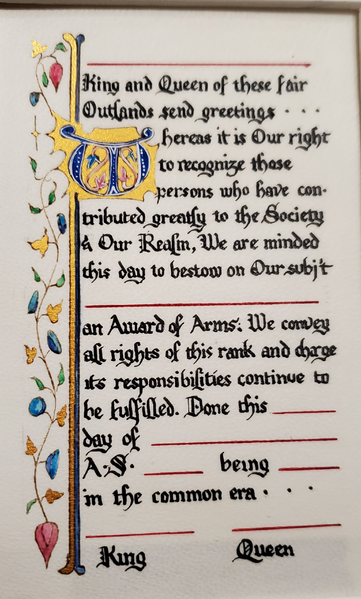 King and Queen of these fair
Outlands send greetings · · ·
Whereas it is Our right
to recognize those
persons who have con-
tributed greatly to the Society
& Our Realm, We are minded
this day to bestow on Our subj't
an Award of Arms. We convey
all rights of this rank and charge
its responsibilities continue to
be fulfilled. Done this
day of
A·S· being
in the common era · · ·
King Queen